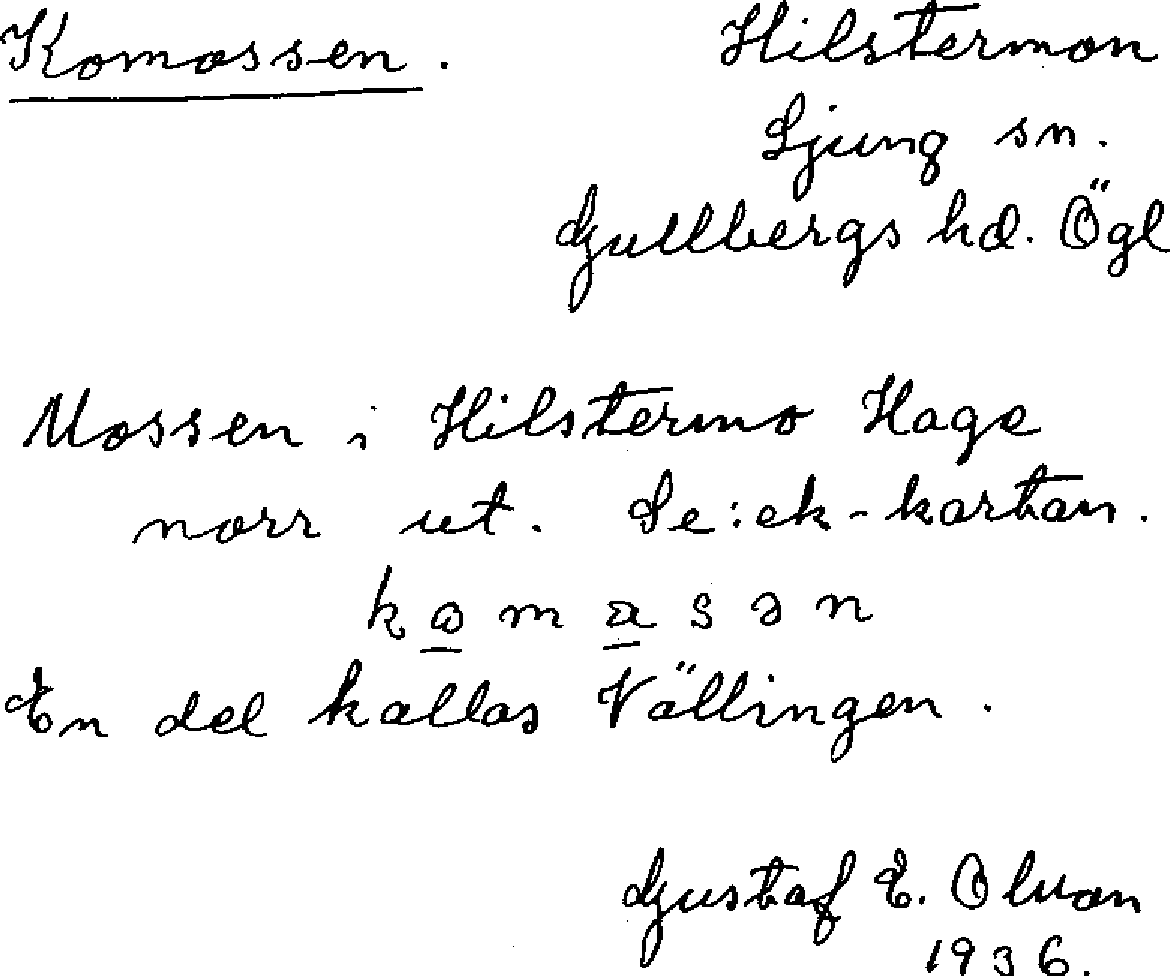 Komossen.
Hilstermon
Ljung sn.
Gullbergs hd. Ögl
Mossen i Hilstermo Hage
norr ut. Se: ek-kartan.
komasən
En del kallas Vällingen.
Gustaf E.
1936.